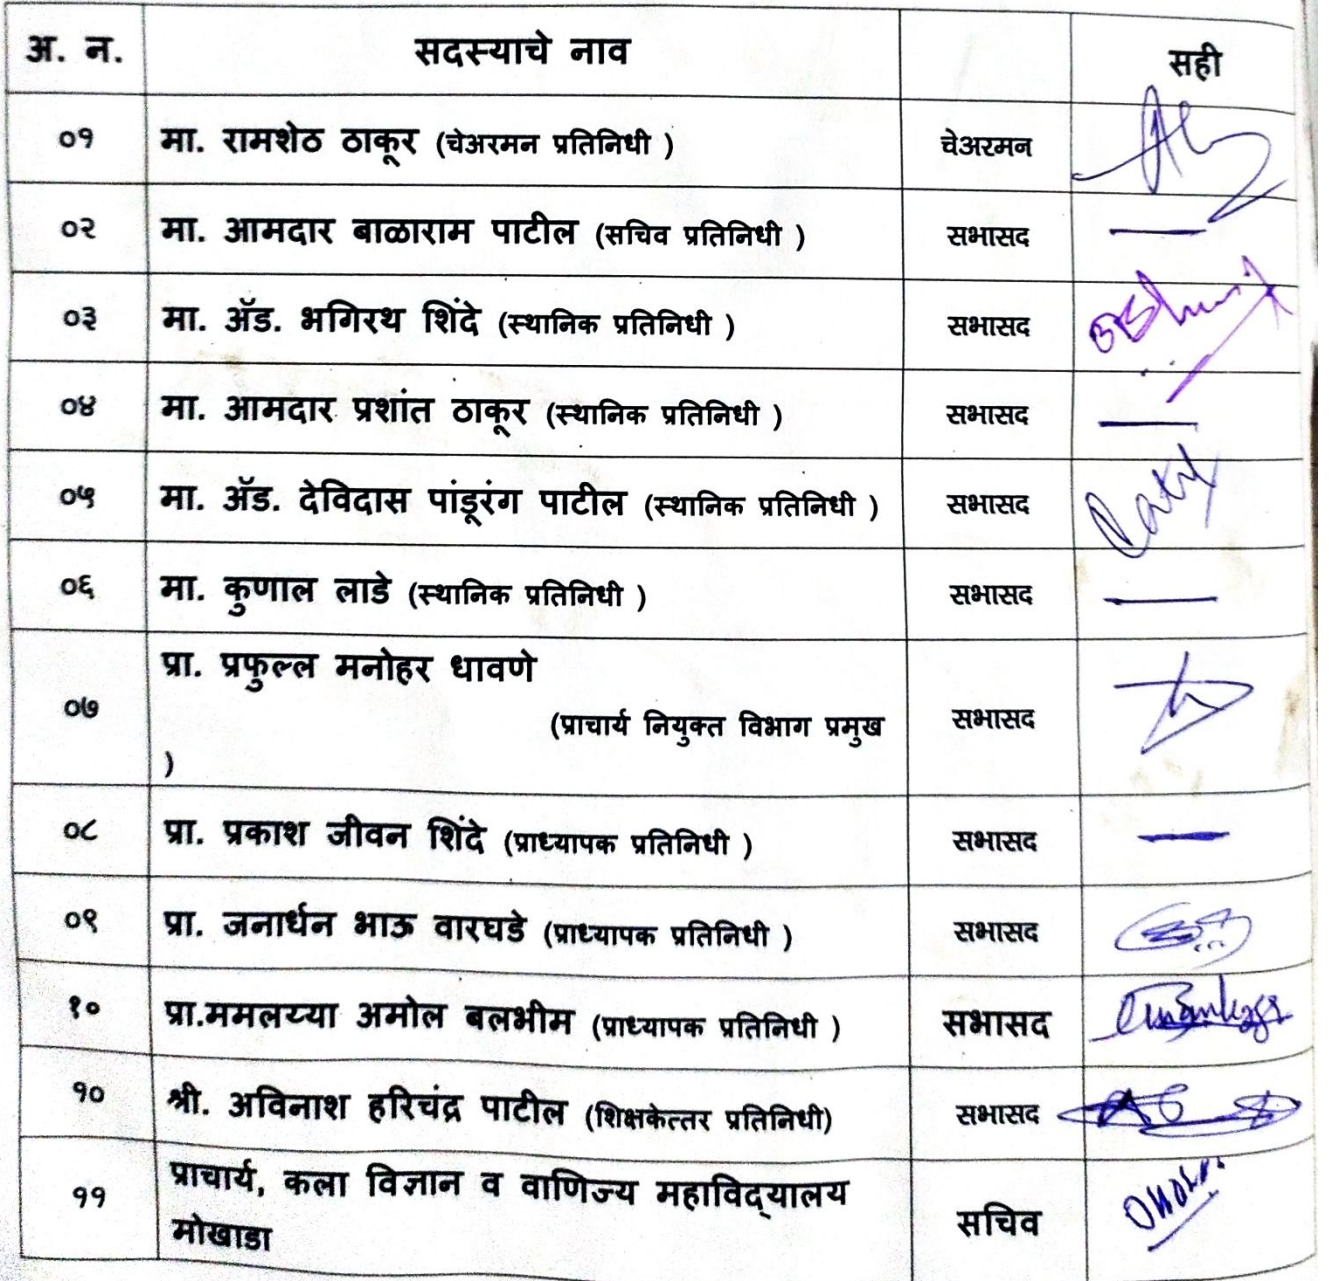 अ. न. सदस्याचे नाव सही
०१ मा. रामशेठ ठाकूर (चेअरमन प्रतिनिधी ) चेअरमन
०२ मा. आमदार बाळाराम पाटील (सचिव प्रतिनिधी ) सभासद
०३ मा. अ‍ॅड. भगिरथ शिंदे (स्थानिक प्रतिनिधी ) सभासद
०४ मा. आमदार प्रशांत ठाकूर (स्थानिक प्रतिनिधी ) सभासद
०५ मा. अ‍ॅड. देविदास पांडूरंग पाटील (स्थानिक प्रतिनिधी ) सभासद
०६ मा. कुणाल लाडे (स्थानिक प्रतिनिधी ) सभासद
०७ प्रा. प्रफुल्ल मनोहर धावणे
(प्राचार्य नियुक्त विभाग प्रमुख सभासद
)
०८ प्रा. प्रकाश जीवन शिंदे (प्राध्यापक प्रतिनिधी ) सभासद
०९ प्रा. जनार्धन भाऊ वारघडे (प्राध्यापक प्रतिनिधी ) सभासद
१० प्रा.ममलय्या अमोल बलभीम (प्राध्यापक प्रतिनिधी ) सभासद
१० श्री. अविनाश हरिचंद्र पाटील (शिक्षकेत्तर प्रतिनिधी) सभासद
११ प्राचार्य, कला विज्ञान व वाणिज्य महाविद्यालय
मोखाडा सचिव